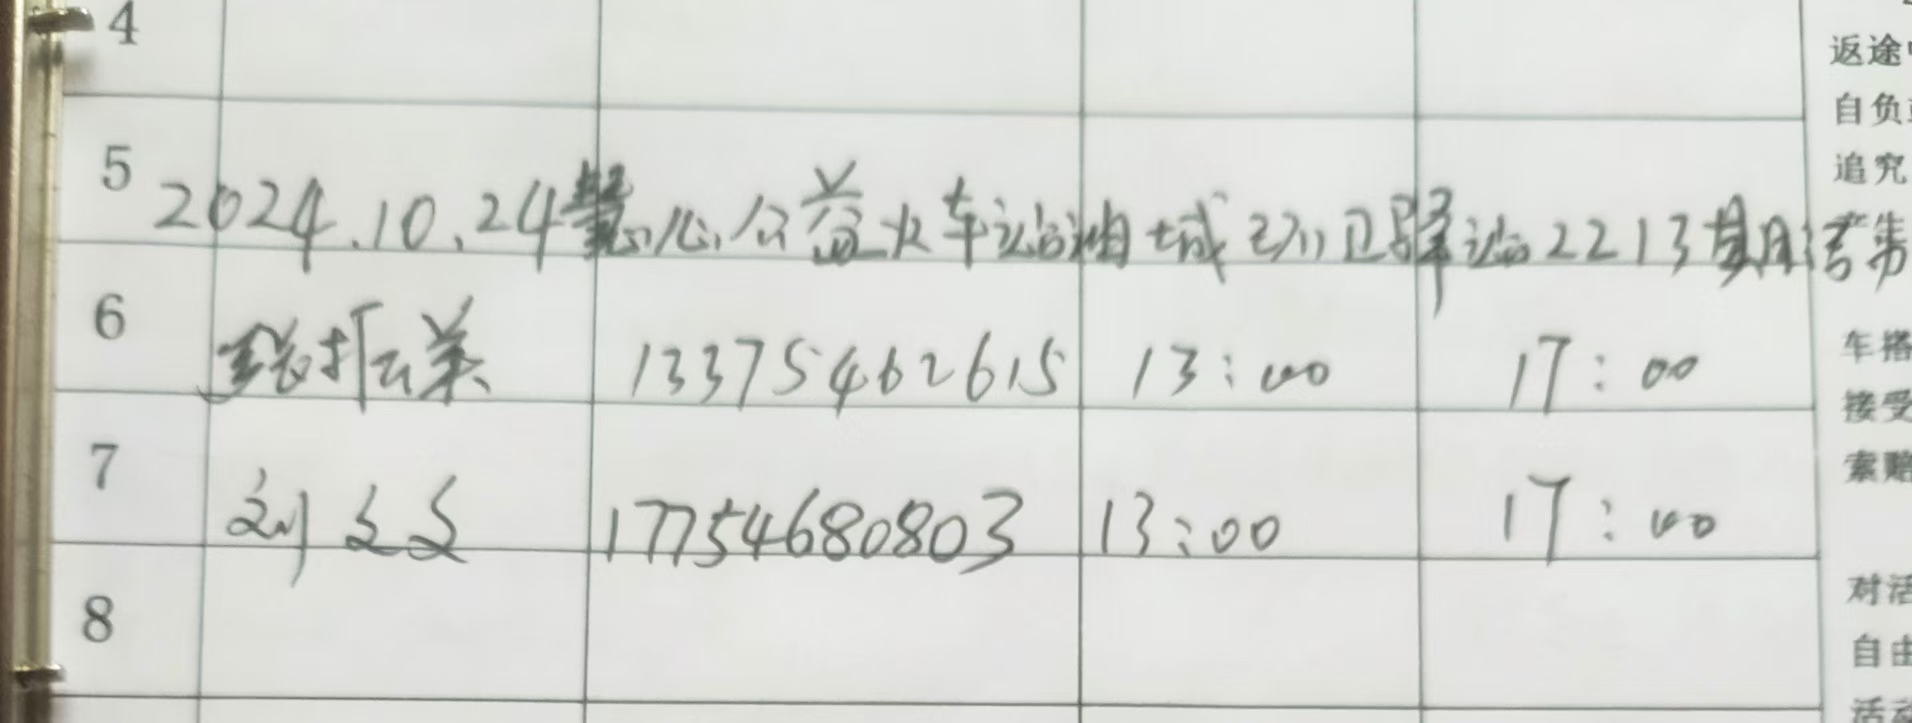 4
返途
自负
5 2024.10.24慧心公益火车站油城环卫驿站2213期活动
追究
产生
6 张振英 13375462615 13:00 17:00
车搭
接受
7 刘文文 17754680803 13:00 17:00
索赔
8
对活
自由
活动